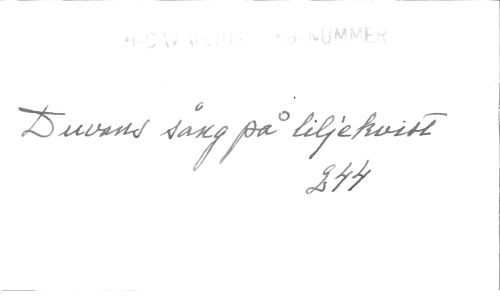 NUMMER
Duvans sång på liljekvist
244